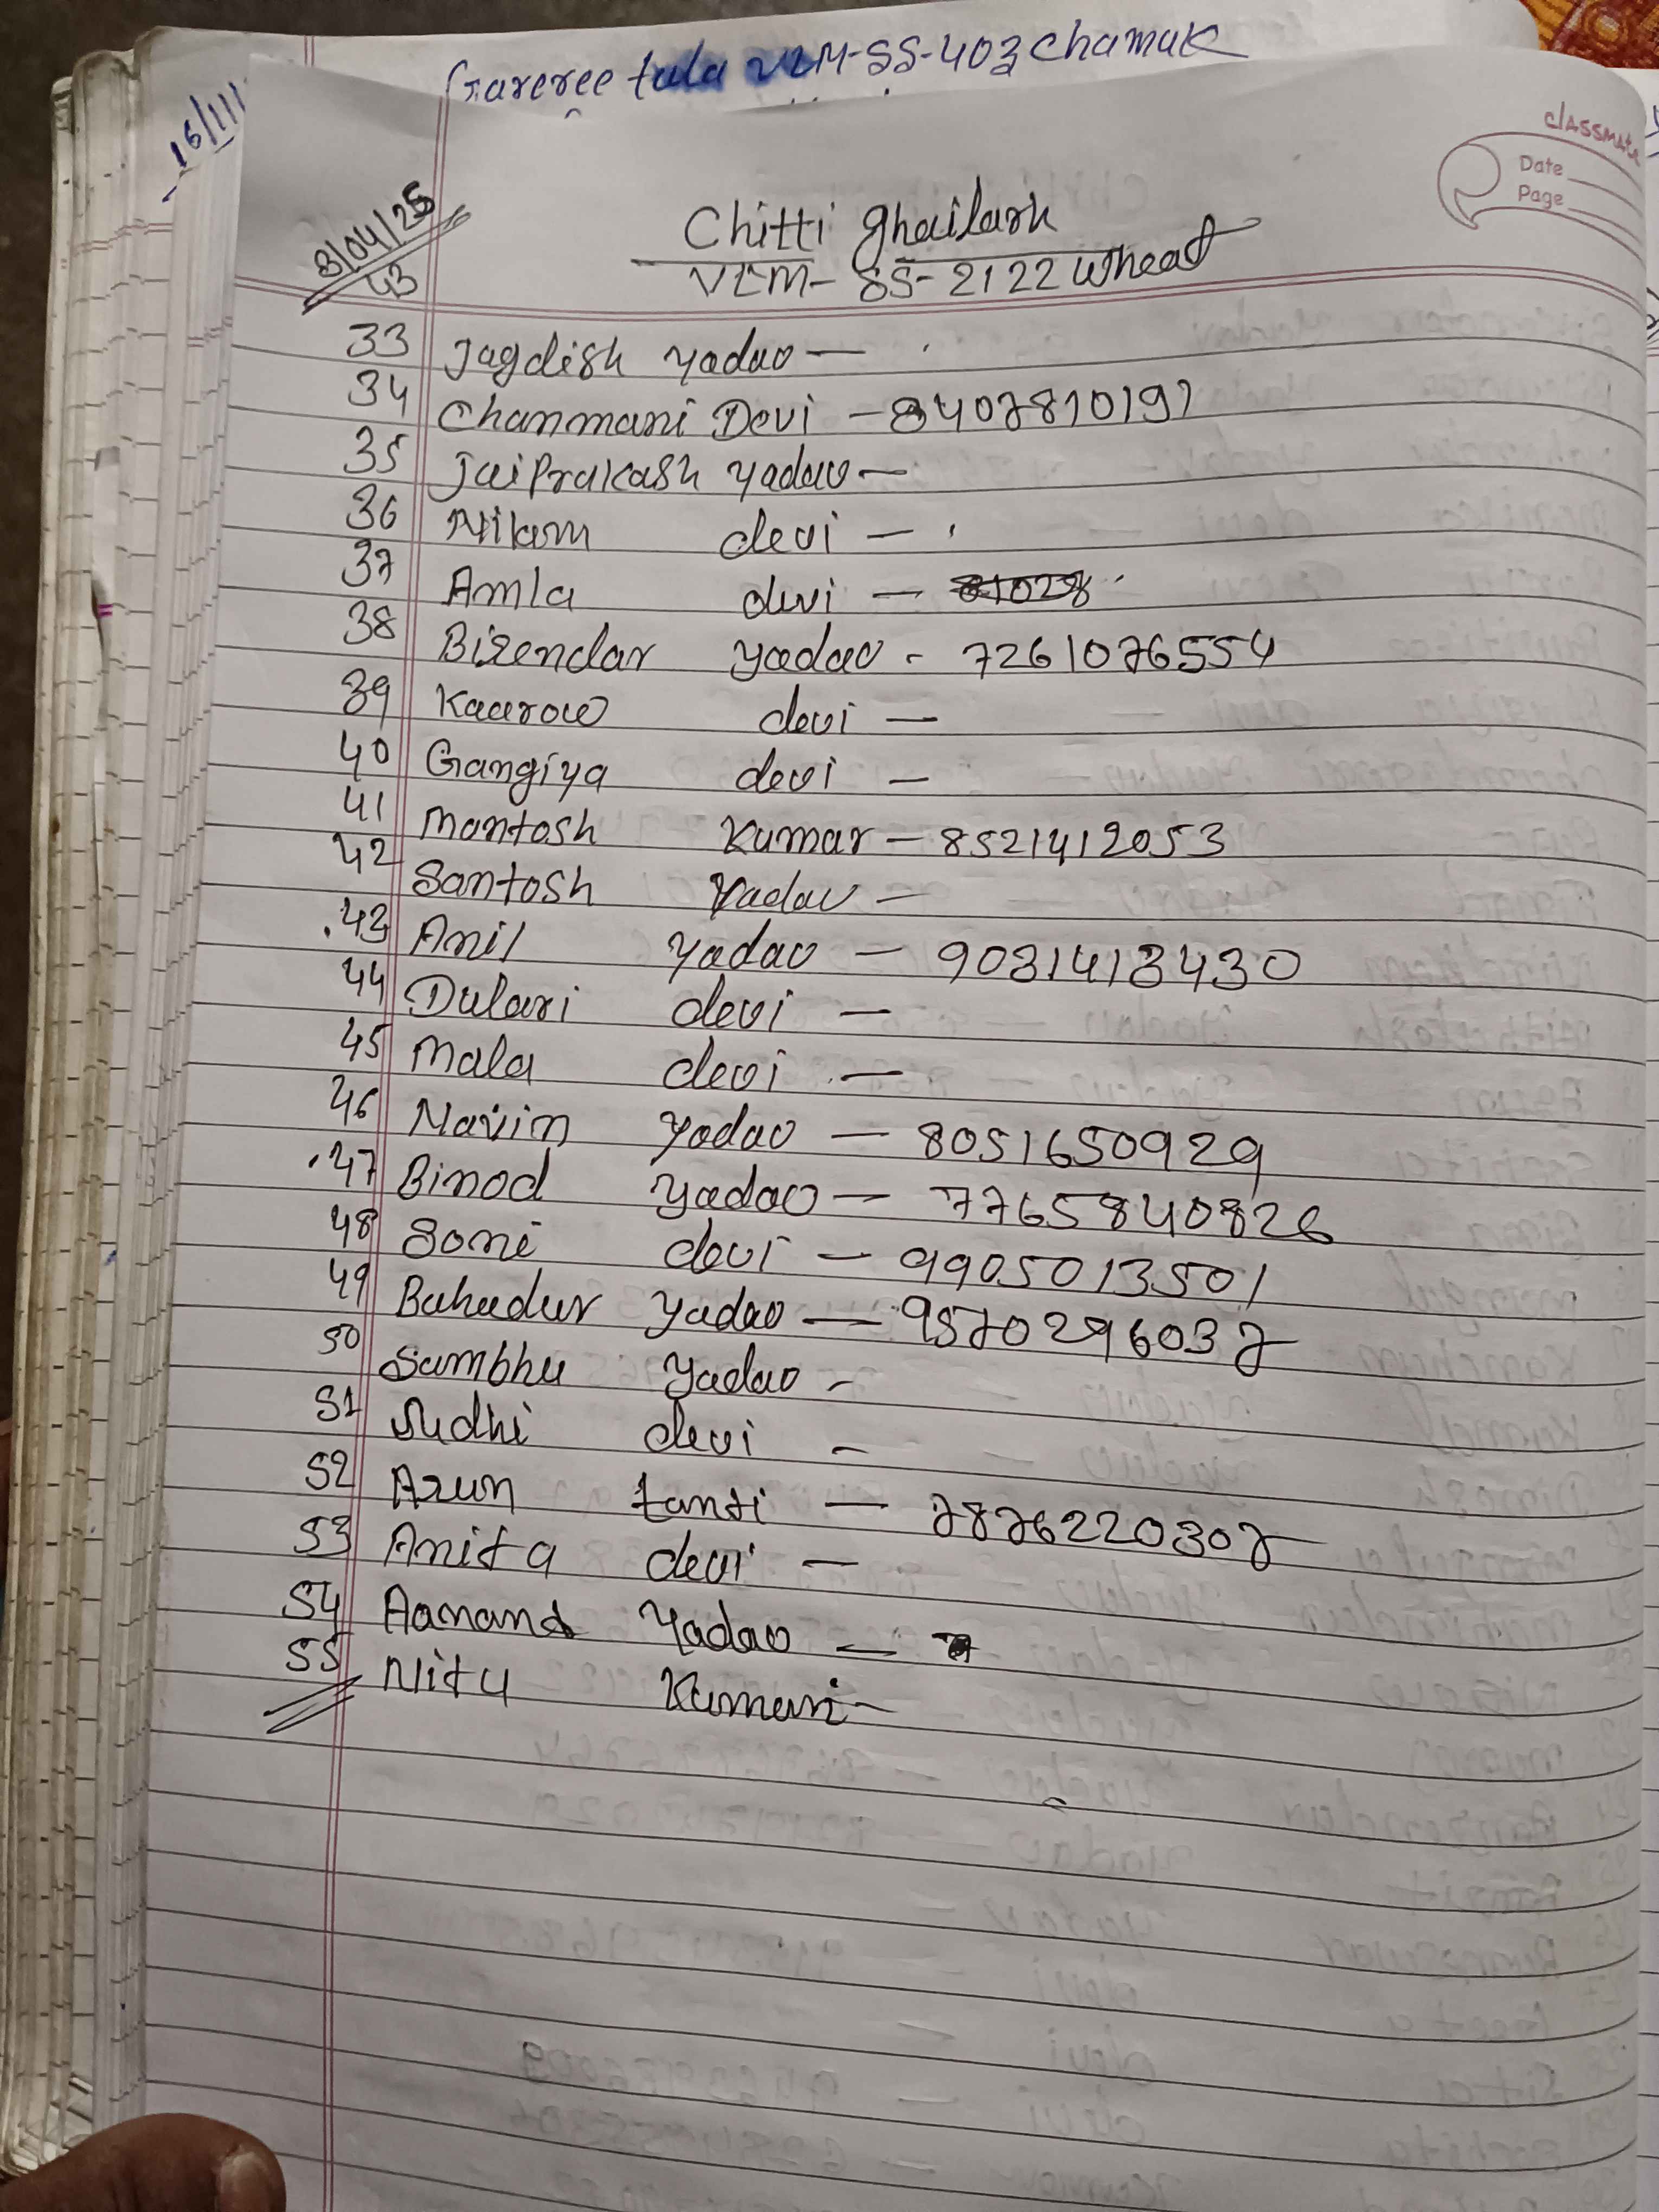 Gareree tula VLM-SS-403 Chamak
16/11/
classmate
Date
Page
3/04/25
43
Chitti ghailarh
VLM- SS- 2122 Wheat
33 Jagdish yadao —
34 Chanmani Devi - 8407810197
35 JaiPrakash yadav —
36 Nilam devi —
37 Amla devi —
38 Birendar yadao - 7261076554
39 Kaarow devi —
40 Gangiya devi —
41 Mantosh Kumar - 8521412053
42 Santosh Yadav —
43 Anil yadao — 9031413430
44 Dulari devi —
45 Mala devi —
46 Navin yadao — 8051650929
47 Binod yadao — 7765840826
48 Soni devi — 9905013501
49 Bahadur yadao — 9570296037
50 Sambhu yadao -
51 Sudhi devi -
52 Arun tanti — 7876220307
53 Anita devi —
54 Aanand Yadao —
55 Nitu Kumari -